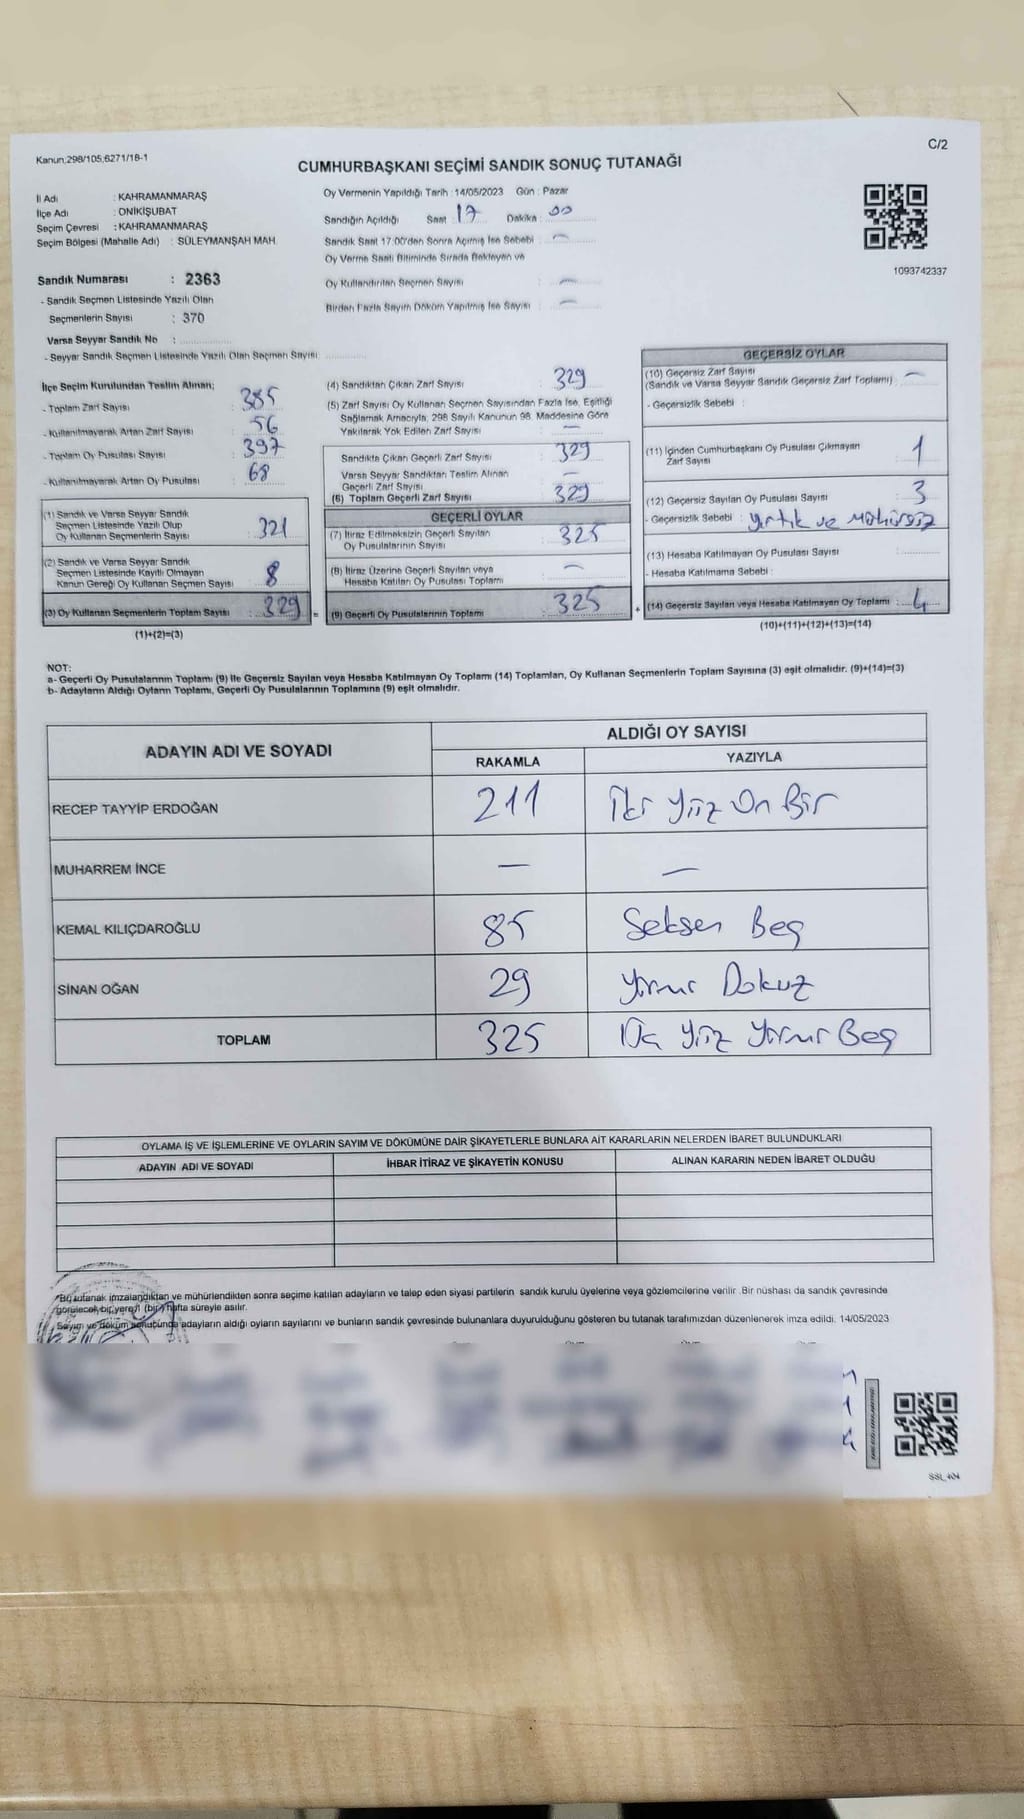 Kanun;298/105,6271/18-1
C/2
CUMHURBAŞKANI SEÇİMİ SANDIK SONUÇ TUTANAĞI
İl Adı : KAHRAMANMARAŞ
İlçe Adı : ONİKİŞUBAT
Seçim Çevresi : KAHRAMANMARAŞ
Seçim Bölgesi (Mahalle Adı) : SÜLEYMANŞAH MAH.
Oy Vermenin Yapıldığı Tarih : 14/05/2023 Gün : Pazar
Sandığın Açıldığı Saat : 17 Dakika : 00
Sandık Saat 17:00'den Sonra Açılmış İse Sebebi : —
Oy Verme Saati Bitiminde Sırada Bekleyen ve
Oy Kullandırılan Seçmen Sayısı : —
Birden Fazla Sayım Döküm Yapılmış İse Sayısı : —
1093742337
Sandık Numarası : 2363
- Sandık Seçmen Listesinde Yazılı Olan
Seçmenlerin Sayısı : 370
Varsa Seyyar Sandık No :
- Seyyar Sandık Seçmen Listesinde Yazılı Olan Seçmen Sayısı:
İlçe Seçim Kurulundan Teslim Alınan;
- Toplam Zarf Sayısı : 385
- Kullanılmayarak Artan Zarf Sayısı : 56
- Toplam Oy Pusulası Sayısı : 397
- Kullanılmayarak Artan Oy Pusulası : 68
(1) Sandık ve Varsa Seyyar Sandık
Seçmen Listesinde Yazılı Olup
Oy Kullanan Seçmenlerin Sayısı : 321
(2) Sandık ve Varsa Seyyar Sandık
Seçmen Listesinde Kayıtlı Olmayan
Kanun Gereği Oy Kullanan Seçmen Sayısı : 8
(3) Oy Kullanan Seçmenlerin Toplam Sayısı : 329 =
(1)+(2)=(3)
(4) Sandıktan Çıkan Zarf Sayısı : 329
(5) Zarf Sayısı Oy Kullanan Seçmen Sayısından Fazla İse, Eşitliği
Sağlamak Amacıyla, 298 Sayılı Kanunun 98. Maddesine Göre
Yakılarak Yok Edilen Zarf Sayısı : —
Sandıkta Çıkan Geçerli Zarf Sayısı : 329
Varsa Seyyar Sandıktan Teslim Alınan
Geçerli Zarf Sayısı : —
(6) Toplam Geçerli Zarf Sayısı : 329
GEÇERLİ OYLAR
(7) İtiraz Edilmeksizin Geçerli Sayılan
Oy Pusulalarının Sayısı : 325
(8) İtiraz Üzerine Geçerli Sayılan veya
Hesaba Katılan Oy Pusulası Toplamı : —
(9) Geçerli Oy Pusulalarının Toplamı : 325 +
GEÇERSİZ OYLAR
(10) Geçersiz Zarf Sayısı
(Sandık ve Varsa Seyyar Sandık Geçersiz Zarf Toplamı) : —
- Geçersizlik Sebebi :
(11) İçinden Cumhurbaşkanı Oy Pusulası Çıkmayan
Zarf Sayısı : 1
(12) Geçersiz Sayılan Oy Pusulası Sayısı : 3
- Geçersizlik Sebebi : yırtık ve Mühürsüz
(13) Hesaba Katılmayan Oy Pusulası Sayısı :
- Hesaba Katılmama Sebebi :
(14) Geçersiz Sayılan veya Hesaba Katılmayan Oy Toplamı : 4
(10)+(11)+(12)+(13)=(14)
NOT:
a- Geçerli Oy Pusulalarının Toplamı (9) İle Geçersiz Sayılan veya Hesaba Katılmayan Oy Toplamı (14) Toplamları, Oy Kullanan Seçmenlerin Toplam Sayısına (3) eşit olmalıdır. (9)+(14)=(3)
b- Adayların Aldığı Oyların Toplamı, Geçerli Oy Pusulalarının Toplamına (9) eşit olmalıdır.
ADAYIN ADI VE SOYADI
ALDIĞI OY SAYISI
RAKAMLA YAZIYLA
RECEP TAYYİP ERDOĞAN 211 İki Yüz On Bir
MUHARREM İNCE — —
KEMAL KILIÇDAROĞLU 85 Seksen Beş
SİNAN OĞAN 29 Yirmi Dokuz
TOPLAM 325 Yüz Yirmi Beş
OYLAMA İŞ VE İŞLEMLERİNE VE OYLARIN SAYIM VE DÖKÜMÜNE DAİR ŞİKAYETLERLE BUNLARA AİT KARARLARIN NELERDEN İBARET BULUNDUKLARI
ADAYIN ADI VE SOYADI İHBAR İTİRAZ VE ŞİKAYETİN KONUSU ALINAN KARARIN NEDEN İBARET OLDUĞU
*Bu tutanak imzalandıktan ve mühürlendikten sonra seçime katılan adayların ve talep eden siyasi partilerin sandık kurulu üyelerine veya gözlemcilerine verilir .Bir nüshası da sandık çevresinde
görülecek bir yere,1 (bir) hafta süreyle asılır.
Sayım ve döküm sonucunda adayların aldığı oyların sayılarını ve bunların sandık çevresinde bulunanlara duyurulduğunu gösteren bu tutanak tarafımızdan düzenlenerek imza edildi. 14/05/2023
SSL_404